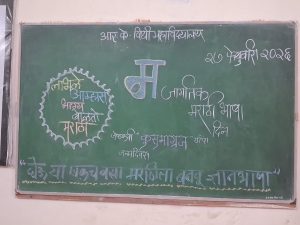 आर के विधी महाविद्यालय
२७ फेब्रुवारी २०२६
लाभले
आम्हास
भाग्य
बोलतो
मराठी
म
जागतिक
मराठी भाषा
दिन
कुसुमाग्रज यांचा
जन्मदिवस
मराठीला ज्ञानभाषा"